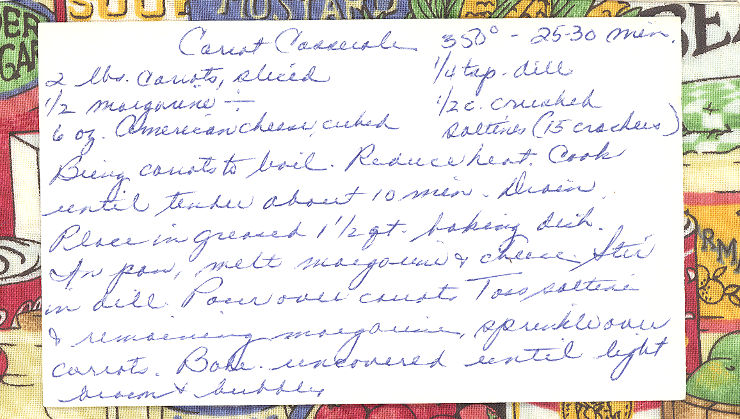 SOUP MUSTARD
Carrot Casserole 350° - 25-30 min.
2 lbs. carrots, sliced
1/4 tsp. dill
1/2 margarine ÷
1/2 c. crushed
6 oz. American cheese, cubed
saltines (15 crackers)
Bring carrots to boil. Reduce heat. Cook
until tender about 10 min. Drain.
Place in greased 1 1/2 qt. baking dish.
In pan, melt margarine & cheese. Stir
in dill. Pour over carrots. Toss saltine
& remaining margarine, sprinkle over
carrots. Bake uncovered until light
brown & bubbly